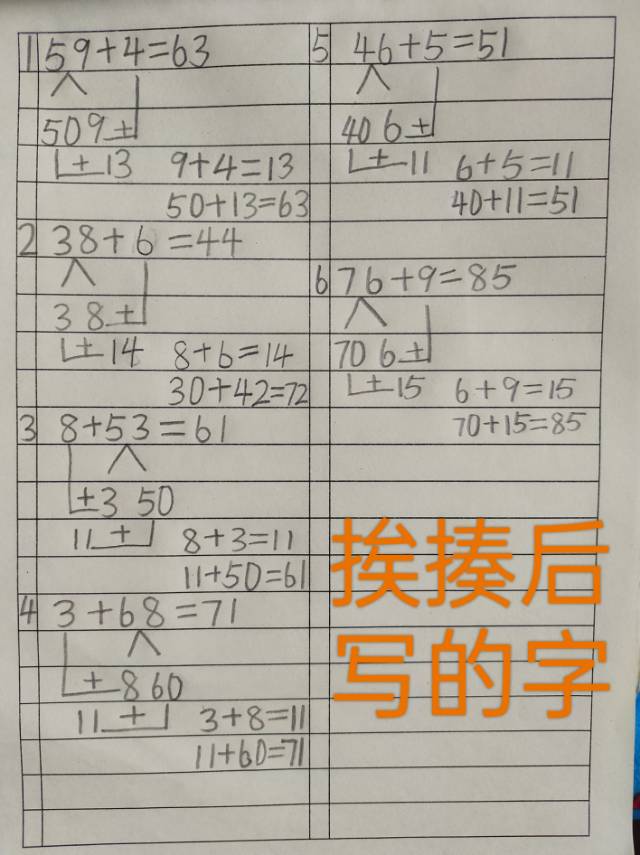 1 59+4=63
509+
+13 9+4=13
50+13=63
2 38+6=44
3 8+
+14 8+6=14
30+42=72
3 8+53=61
+3 50
11+ 8+3=11
11+50=61
4 3+68=71
+8 60
11+ 3+8=11
11+60=71
5 46+5=51
40 6+
+11 6+5=11
40+11=51
6 76+9=85
70 6+
+15 6+9=15
70+15=85
挨揍后
写的字